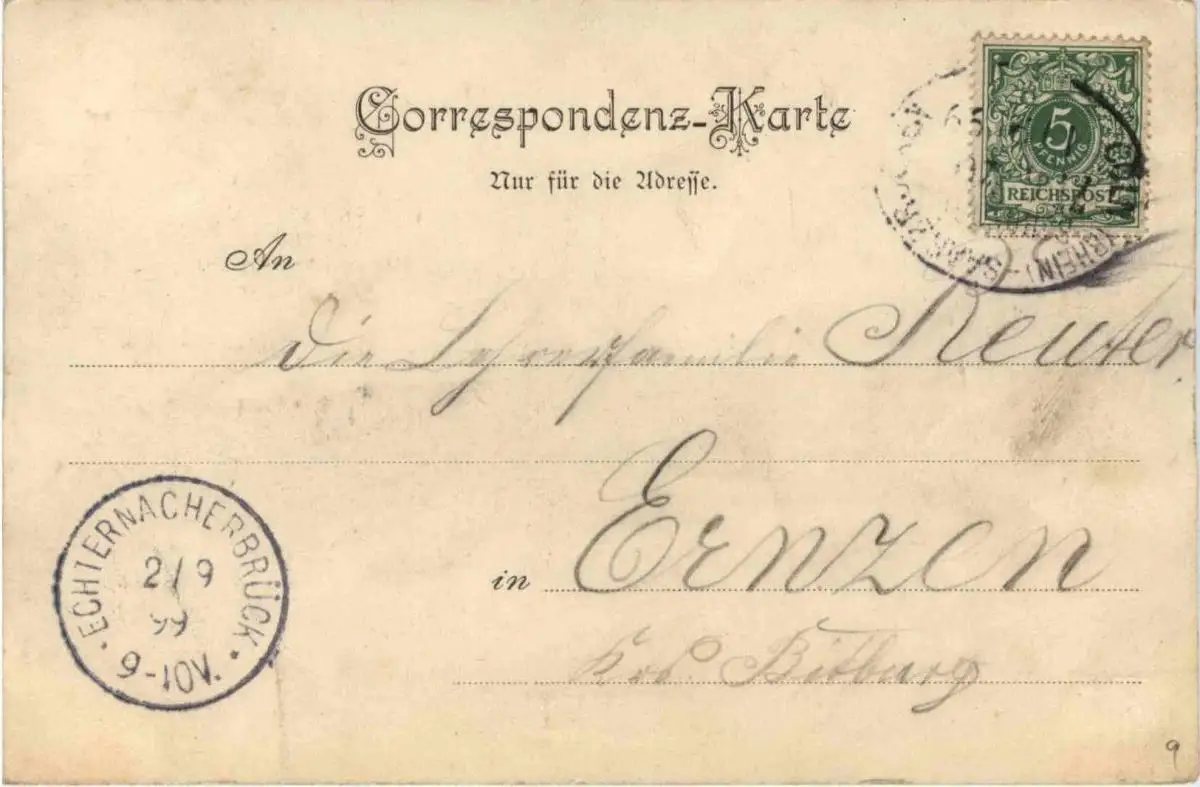 Correspondenz-Karte
Nur für die Adresse.
5
PFENNIG
REICHSPOST
CÖLN (RHEIN)-
An
Die Lehrerfamilie Reuter.
ECHTERNACHERBRÜCK
2/9
99
6-10V.
in Ernzen
Krs. Bitburg
9